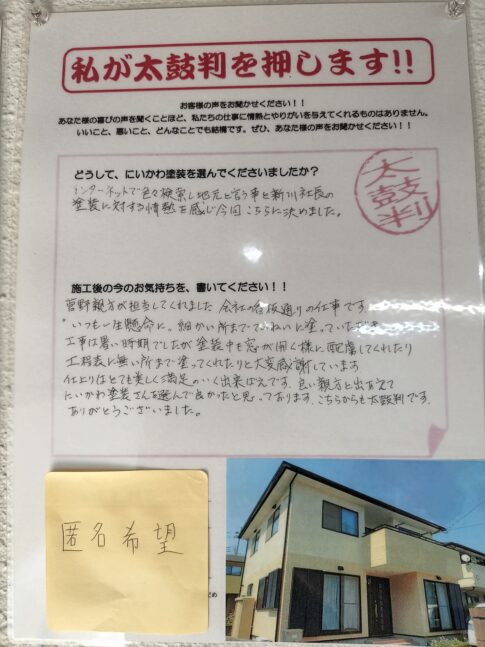 私が太鼓判を押します!!
お客様の声をお聞かせください！！
あなた様の喜びの声を聞くことほど、私たちの仕事に情熱とやりがいを与えてくれるものはありません。
いいこと、悪いこと、どんなことでも結構です。ぜひ、あなた様の声をお聞かせください！！
どうして、にいかわ塗装を選んでくださいましたか？
太鼓判
インターネットで色々検索し地元と言う事と新川社長の
塗装に対する情熱を感じ今回こちらに決めました。
施工後の今のお気持ちを、書いてください！！
菅野親方が担当してくれました 会社の看板通りの仕事です
"いつも一生懸命に。細かい所までていねいに塗っていただき
工事は暑い時期でしたが塗装中も窓が開く様に配慮してくれたり
工程表に無い所まで塗ってくれたりと大変感謝しています
仕上りはとても美しく満足のいく出来ばえです。良い親方と出会えて
にいかわ塗装さんを選んで良かったと思っております。こちらからも太鼓判です。
ありがとうございました。
匿名希望